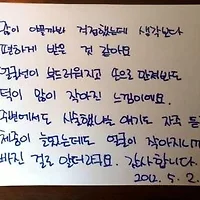 많이 아플까봐 걱정했는데 생각보다
편하게 받은 것 같아요
얼굴선이 부드러워지고 손으로 만져봐도
턱이 많이 작아진 느낌이에요.
주변에서도 시술했냐는 얘기도 자주 듣
체중이 늘었는데도 얼굴이 작아지니까
빠진 걸로 알더라구요. 감사합니다.
2012. 5. 2